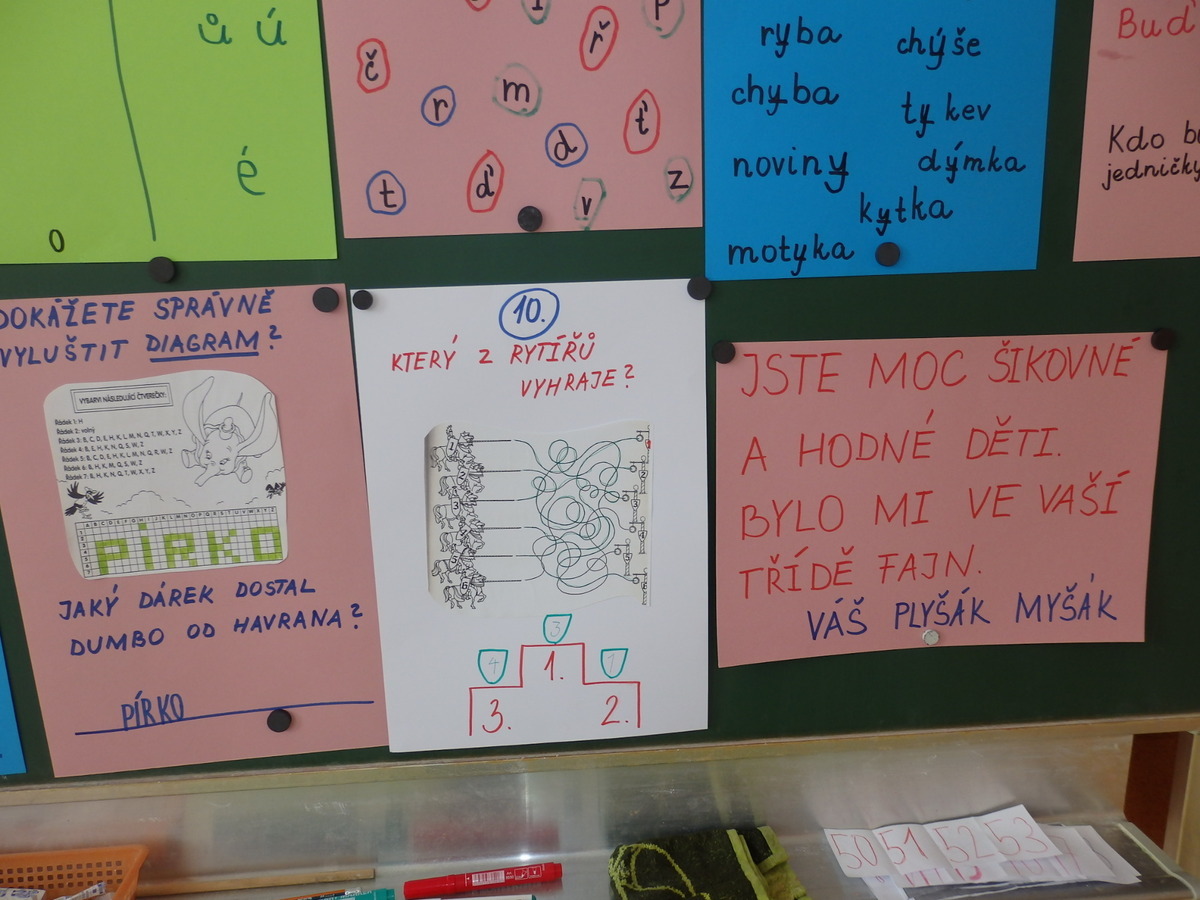 ů ú
é
o
č
ř
r
m
ť
d
t
ď
v
z
ryba
chýše
chyba
tykev
noviny
dýmka
kytka
motyka
Buď
Kdo
jedničky
DOKÁŽETE SPRÁVNĚ
VYLUŠTIT DIAGRAM?
VYBARVI NÁSLEDUJÍCÍ ČTVEREČKY:
Řádek 1: H
Řádek 2: volný
Řádek 3: B, C, D, E, H, K, L, M, N, Q, T, W, X, Y, Z
Řádek 4: B, E, H, K, N, Q, S, W, Z
Řádek 5: B, C, D, E, H, K, L, M, N, Q, R, W, Z
Řádek 6: B, H, K, M, Q, S, W, Z
Řádek 7: B, H, K, N, Q, T, W, X, Y, Z
PÍRKO
JAKÝ DÁREK DOSTAL
DUMBO OD HAVRANA?
PÍRKO
10.
KTERÝ Z RYTÍŘŮ
VYHRAJE?
1
2
3
4
5
6
3
4
1
1.
3.
2.
JSTE MOC ŠIKOVNÉ
A HODNÉ DĚTI.
BYLO MI VE VAŠÍ
TŘÍDĚ FAJN.
VÁŠ PLYŠÁK MYŠÁK
50 51 52 53